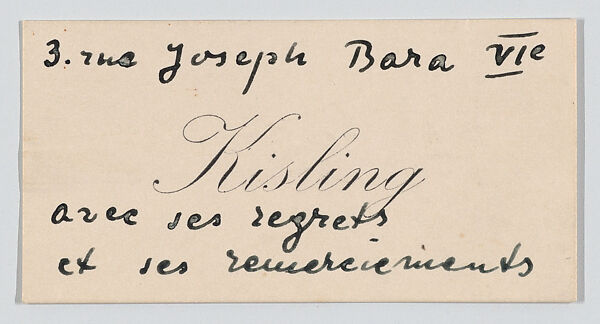 3. rue Joseph Bara VIe
Kisling
avec ses regrets
et ses remerciements